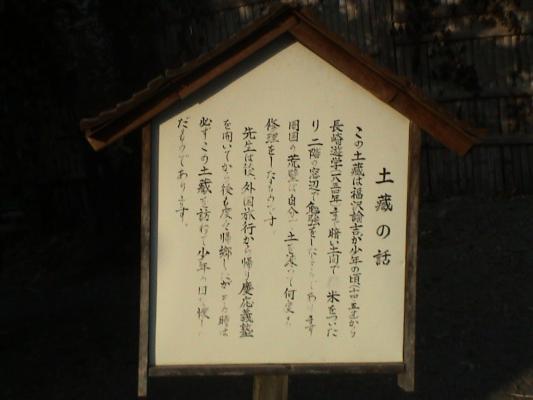 土蔵の話
この土蔵は福沢諭吉が少年の頃(十四五才)から
長崎遊学(一八五四年)まで暗い土間で 米をついた
り二階の窓辺で勉強をしたところであります
周囲の荒壁は自分で土を 何度も
修理をしたものです。
先生は後、外国旅行から帰り慶応義塾
を開いてから後も度々帰郷しましたがその時は
必ずこの土蔵を訪ねて少年の日を懐し
だものであります。